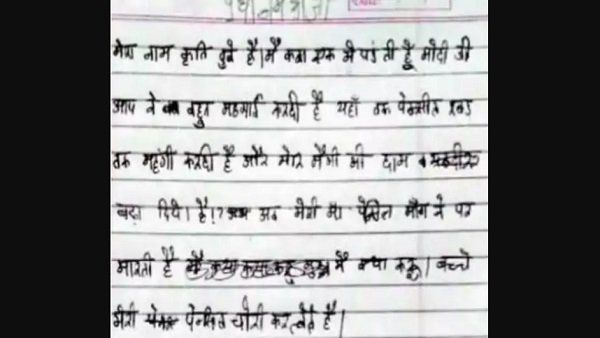 प्रधानमंत्री जी
मेरा नाम कृति दुबे है। मैं कक्षा एक में पढ़ती हूँ मोदी जी
आप ने बहुत महगाई करदी है यहाँ तक पेन्सील रबड़
तक महंगी करदी है और मेरे मैगी की दाम भी
बढ़ा दिये। है।? अब मेरी मा पेंसिल माँग ने पर
मारती है मैं क्या करू। बच्चे
मेरी पेनसिल चोरी कर लेते है।